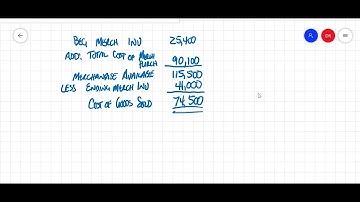 BEG MERCH INV 25,400
ADD: TOTAL COST OF MERCH PURCH 90,100
MERCHANDISE AVAILABLE 115,500
LESS ENDING MERCH INV 41,000
COST OF GOODS SOLD 74,500